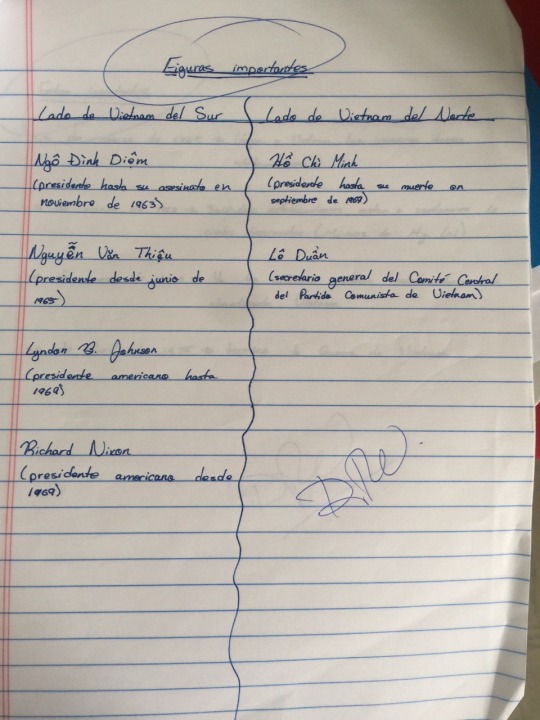 Figuras importantes
Lado de Vietnam del Sur
Ngô Đình Diệm
(presidente hasta su asesinato en
noviembre de 1963)
Nguyễn Văn Thiệu
(presidente desde junio de
1965)
Lyndon B. Johnson
(presidente americano hasta
1969)
Richard Nixon
(presidente americano desde
1969)
Lado de Vietnam del Norte
Hồ Chí Minh
(presidente hasta su muerte en
septiembre de 1969)
Lê Duẩn
(secretario general del Comité Central
del Partido Comunista de Vietnam)